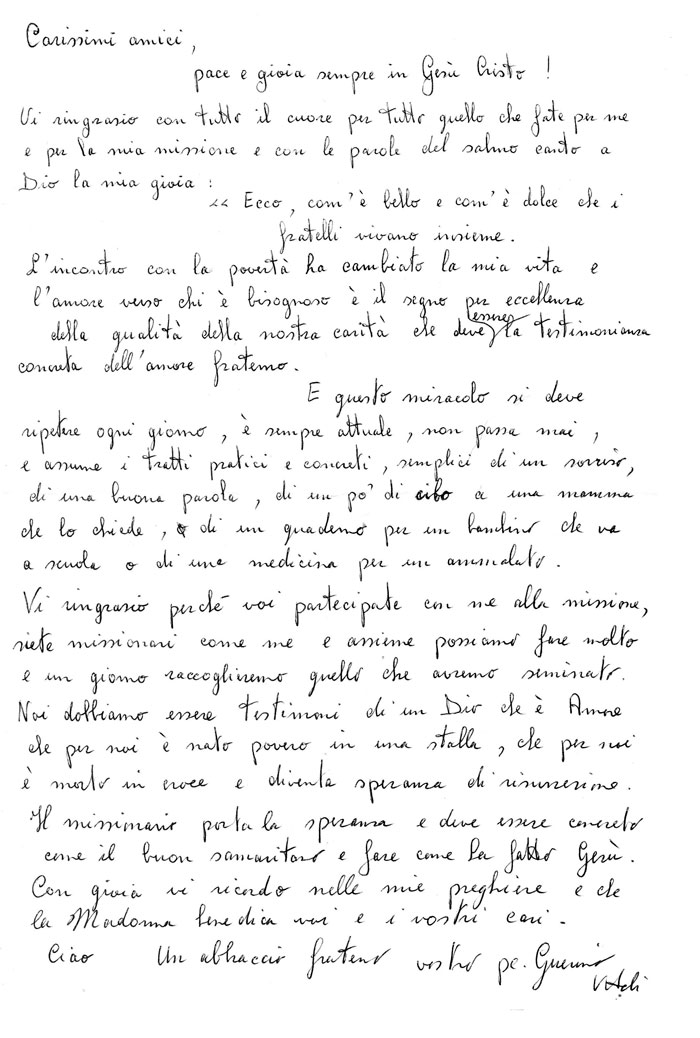 Carissimi amici,
pace e gioia sempre in Gesù Cristo !
Vi ringrazio con tutto il cuore per tutto quello che fate per me
e per la mia missione e con le parole del salmo canto a
Dio la mia gioia :
“ Ecco, com'è bello e com'è dolce che i
fratelli vivano insieme.
L'incontro con la povertà ha cambiato la mia vita e
l'amore verso chi è bisognoso è il segno per eccellenza
della qualità della nostra carità che deve essere la testimonianza
concreta dell'amore fraterno.
E questo miracolo si deve
ripetere ogni giorno, è sempre attuale, non passa mai,
e assume i tratti pratici e concreti, semplici di un sorriso,
di una buona parola, di un po' di cibo a una mamma
che lo chiede, o di un quaderno per un bambino che va
a scuola o di una medicina per un ammalato.
Vi ringrazio perché voi partecipate con me alla missione,
siete missionari come me e assieme possiamo fare molto
e un giorno raccoglieremo quello che avremo seminato.
Noi dobbiamo essere testimoni di un Dio che è Amore
che per noi è nato povero in una stalla, che per noi
è morto in croce e diventa speranza di risurrezione.
Il missionario porta la speranza e deve essere concreto
come il buon samaritano e fare come ha fatto Gesù.
Con gioia vi ricordo nelle mie preghiere e che
la Madonna benedica voi e i vostri cari.
Ciao Un abbraccio fraterno vostro pe. Guerrino